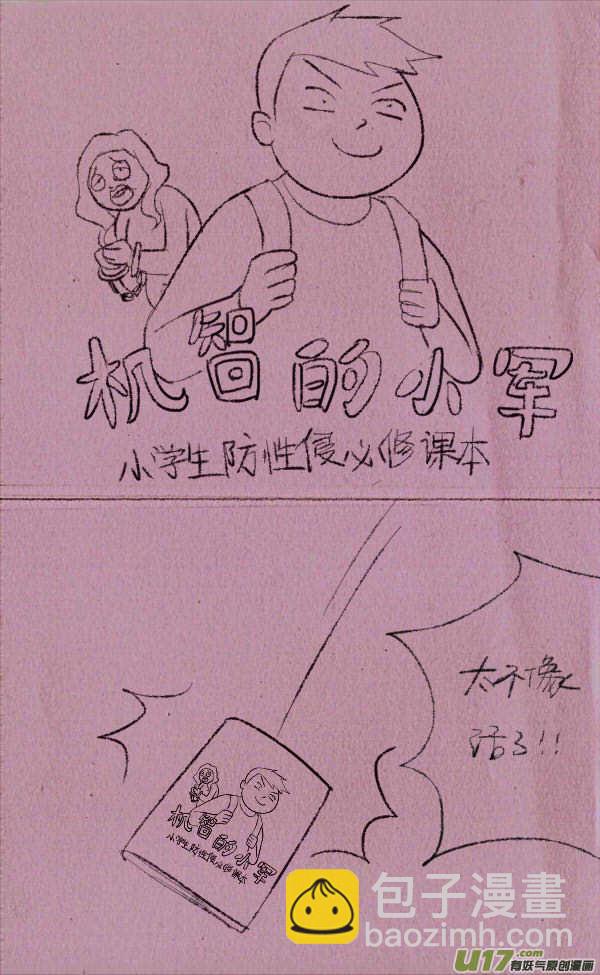 机智的小军
小学生防性侵必修课本
太不像
话了!!
机智的小军
小学生防性侵必修课本
包子漫畫
baozimh.com
U17.com
有妖气原创漫画